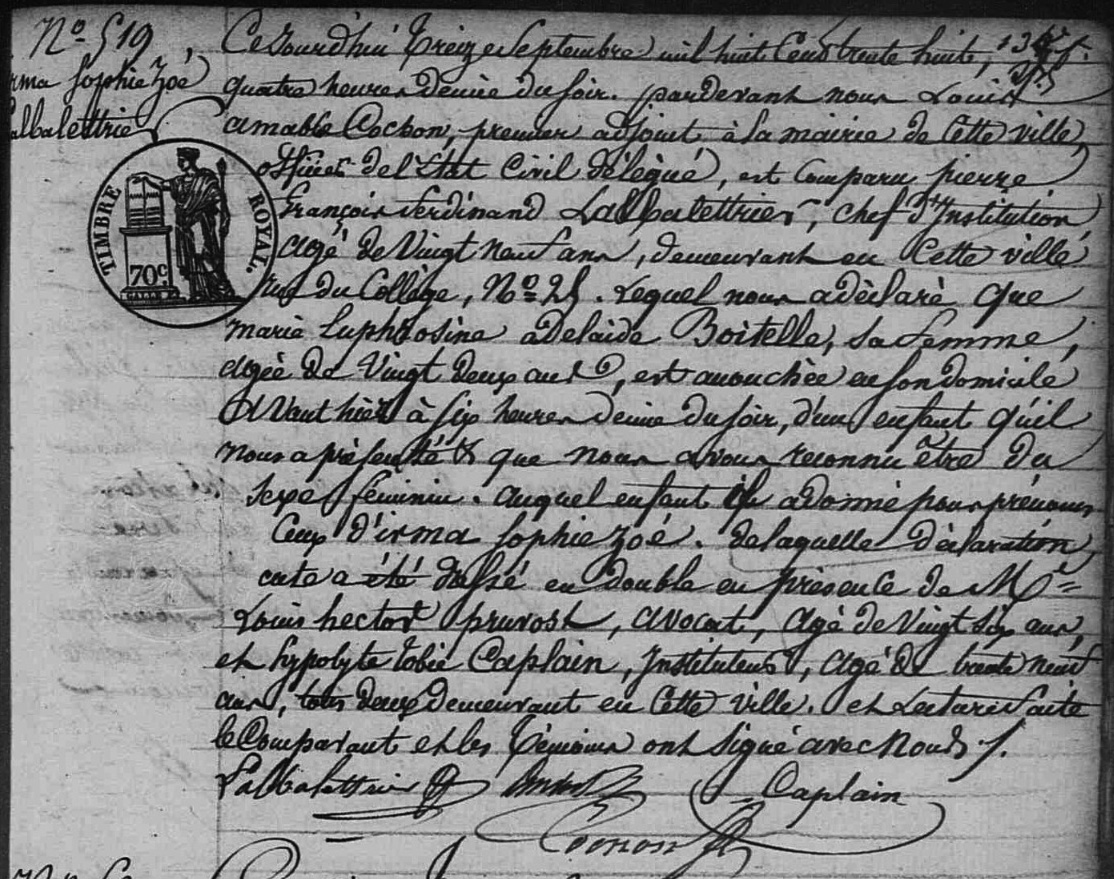 N° 519,
irma Sophie Zoé
Lalbalettrier
TIMBRE ROYAL.
70c
Cejourdhui treize Septembre mil huit Cent trente huit,
quatre heures demie du soir. pardevant nous Louis
amable Cochon, premier adjoint à la mairie de Cette ville,
officier de l'état Civil délégué, est Comparu pierre
françois ferdinand Lalbalettrier, chef d'Institution,
agé de Vingt neuf ans, demeurant en Cette ville
rue du Collège, N° 25. Lequel nous a déclaré que
marie Euphrosine adelaide Boitelle, sa femme,
agée de Vingt deux ans, est accouchée en son domicile
avant hier à six heures demie du soir, d'un enfant qu'il
nous a présenté & que nous avons reconnu être du
sexe féminin. auquel enfant il a donné pour prénoms
Ceux d'irma Sophie Zoé. de laquelle déclaration,
acte a été dressé en double en présence de Mrs
Louis hector pruvost, avocat, agé de Vingt six ans,
et hypolyte tobie Caplain, Instituteur, agé de trente neuf
ans, tous deux demeurant en Cette ville. et Lecture faite
le Comparant et les témoins ont signé avec Nous ./.
Lalbalettrier Caplain